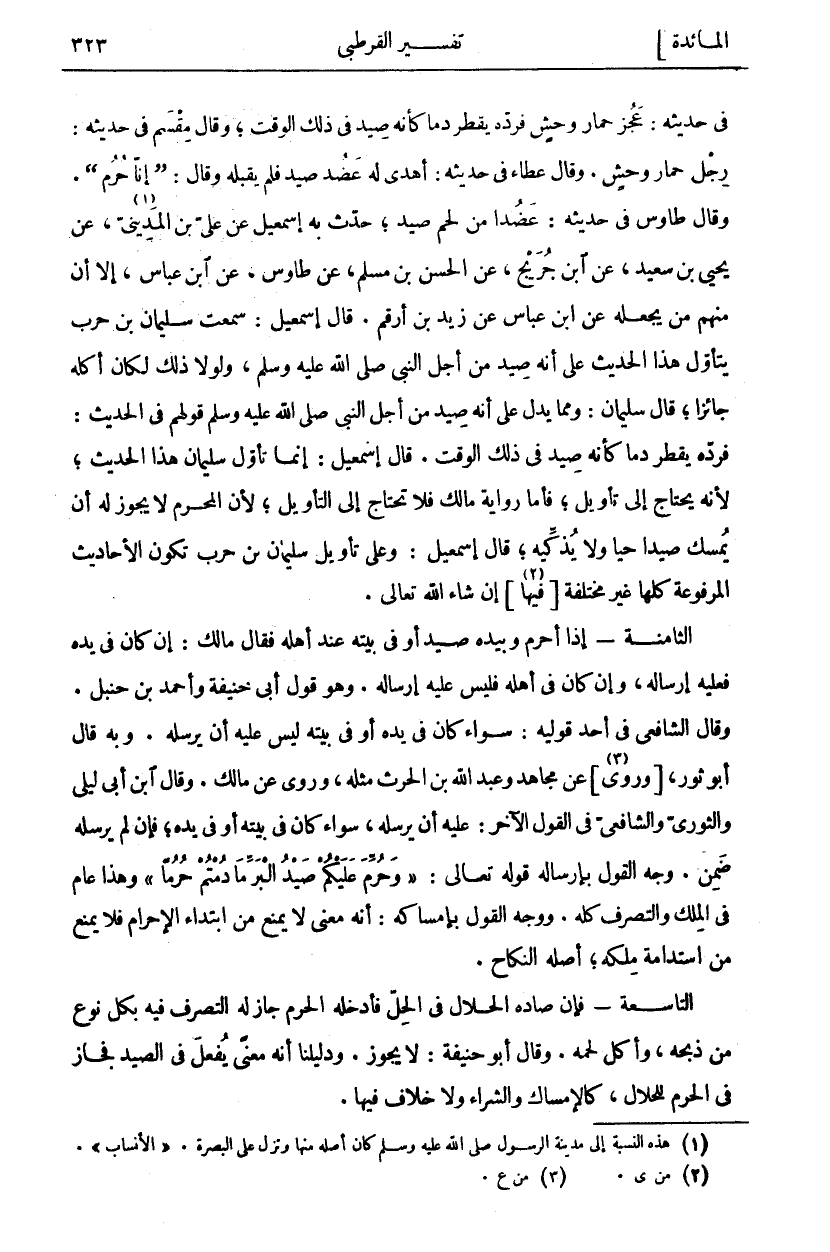 المائدة ] تفسير القرطبى ٣٢٣
فى حديثه : عَجُز حمار وحشٍ فردّه يقطر دما كأنه صِيد فى ذلك الوقت ؛ وقال مِقْسَم فى حديثه :
رِجْل حمار وحشٍ . وقال عطاء فى حديثه : أهدى له عَضُد صيد فلم يقبله وقال : ” إنّا حُرُم “ .
وقال طاوس فى حديثه : عَضُدا من لحم صيد ؛ حدّث به إسمعيل عن علىّ بن المَدِينىّ (١) ، عن
يحيى بن سعيد ، عن ٱبن جُرَيْج ، عن الحسن بن مسلم ، عن طاوس ، عن ٱبن عباس ، إلا أن
منهم من يجعـله عن ابن عباس عن زيد بن أرقم . قال إسمعيل : سمعت سليمان بن حرب
يتأوّل هذا الحديث على أنه صِيد من أجل النبى صلى الله عليه وسلم ، ولولا ذلك لكان أكله
جائزا ؛ قال سليمان : ومما يدل على أنه صِيد من أجل النبى صلى الله عليه وسلم قولهم فى الحديث :
فردّه يقطر دما كأنه صِيد فى ذلك الوقت . قال إسمعيل : إنما تأوّل سليمان هذا الحديث ؛
لأنه يحتاج إلى تأويل ؛ فأما رواية مالك فلا تحتاج إلى التأويل ؛ لأن المحرم لا يجوز له أن
يُمسك صيدا حيا ولا يُذكِّيه ؛ قال إسمعيل : وعلى تأويل سليمان بن حرب تكون الأحاديث
المرفوعة كلها غير مختلفة [ فيها (٢) ] إن شاء الله تعالى .
الثامنـة – إذا أحرم وبيده صيد أو فى بيته عند أهله فقال مالك : إن كان فى يده
فعليه إرساله ، وإن كان فى أهله فليس عليه إرساله . وهو قول أبى حنيفة وأحمد بن حنبل .
وقال الشافعى فى أحد قوليه : سواء كان فى يده أو فى بيته ليس عليه أن يرسله . وبه قال
أبو ثور ، [ وروى (٣) ] عن مجاهد وعبد الله بن الحرث مثله ، وروى عن مالك . وقال ٱبن أبى ليلى
والثورىّ والشافعىّ فى القول الآخر : عليه أن يرسله ، سواء كان فى بيته أو فى يده ؛ فإن لم يرسله
ضَمِن . وجه القول بإرساله قوله تعـالى : « وَحُرِّمَ عَلَيْكُمْ صَيْدُ الْبَرِّ مَا دُمْتُمْ حُرُمًا » وهذا عام
فى المِلك والتصرف كله . ووجه القول بإمساكه : أنه معنى لا يمنع من ابتداء الإحرام فلا يمنع
من استدامة مِلكه ؛ أصله النكاح .
التاسعـة – فإن صاده الحـلال فى الحِلّ فأدخله الحرم جاز له التصرف فيه بكل نوع
من ذبحه ، وأكل لحمه . وقال أبو حنيفة : لا يجوز . ودليلنا أنه معنًى يُفعلَ فى الصيد فجاز
فى الحرم للحلال ، كالإمساك والشراء ولا خلاف فيها .
(١) هذه النسبة إلى مدينة الرسول صلى الله عليه وسلم كان أصله منها ونزل على البصرة . « الأنساب » .
(٢) من ى . (٣) من ع .